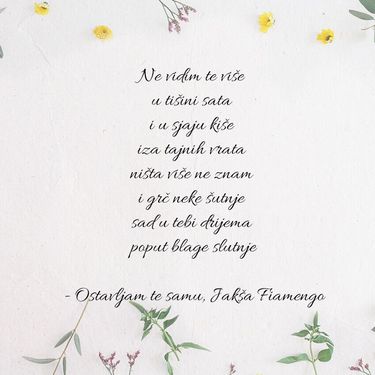 Ne vidim te više
u tišini sata
i u sjaju kiše
iza tajnih vrata
ništa više ne znam
i grč neke šutnje
sad u tebi drijema
poput blage slutnje
- Ostavljam te samu, Jakša Fiamengo